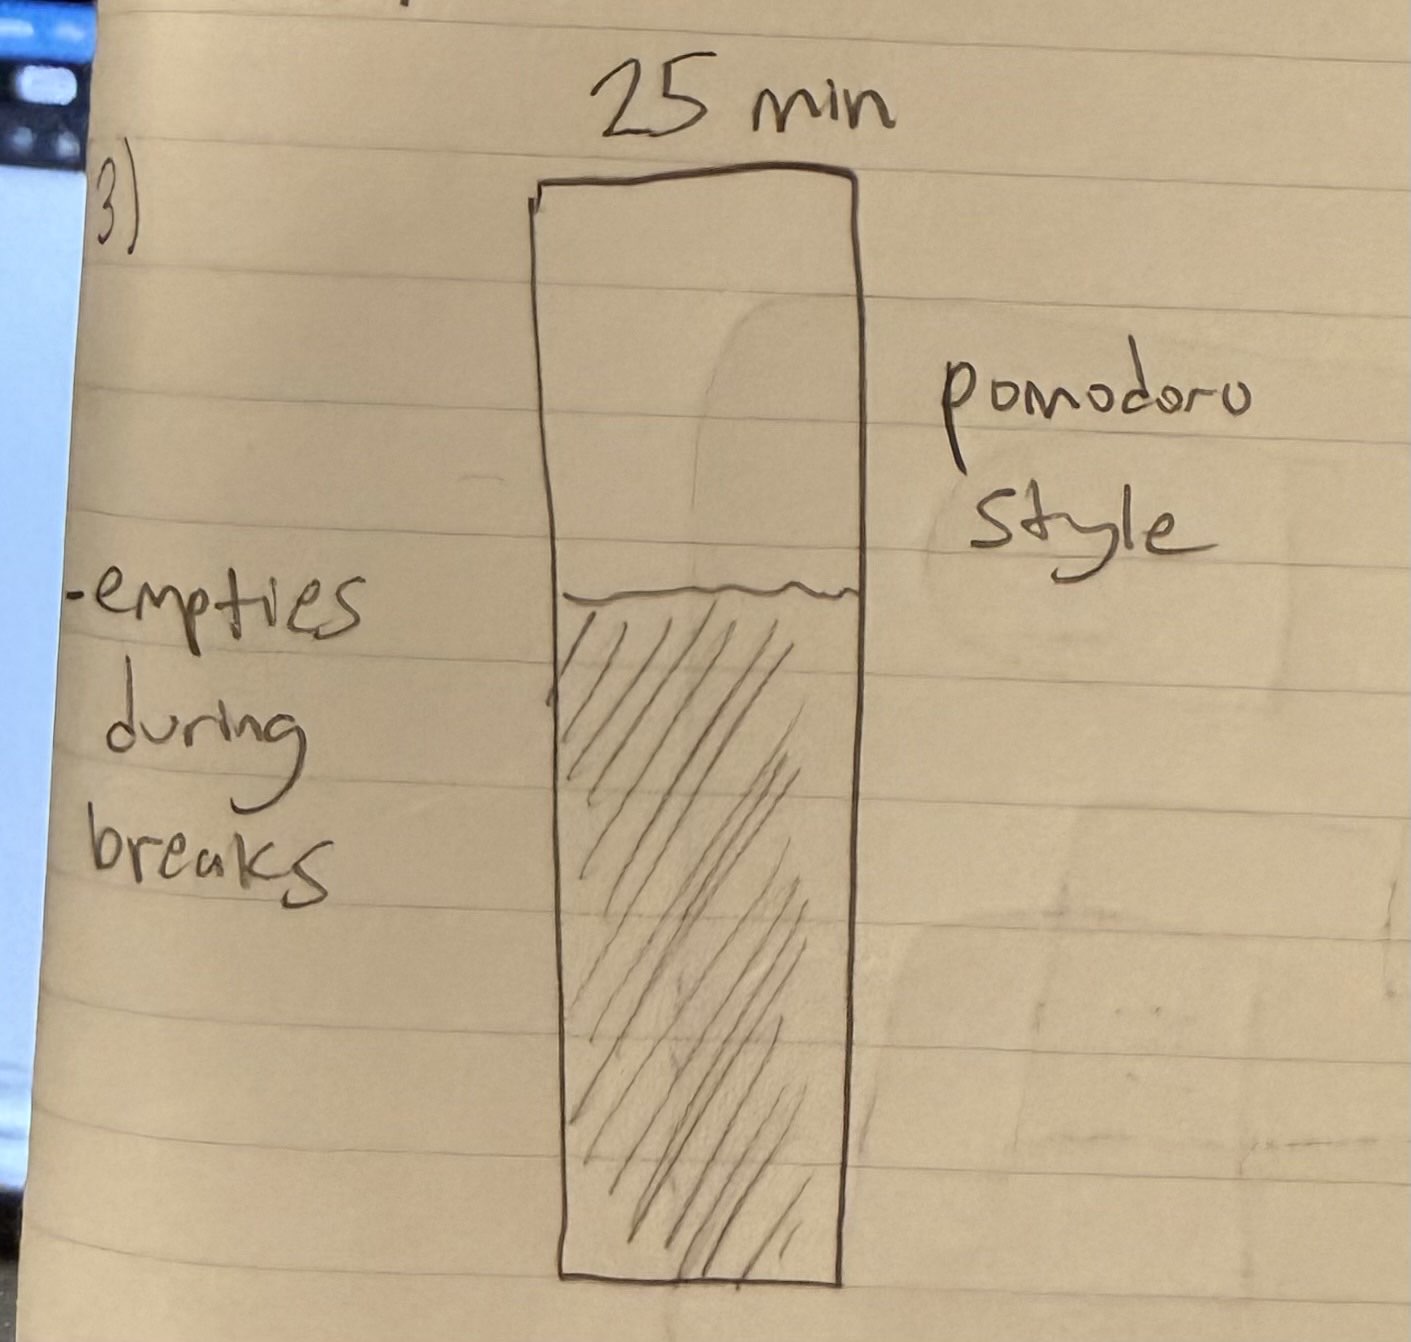 25 min
3)
pomodoro
style
-empties
during
breaks